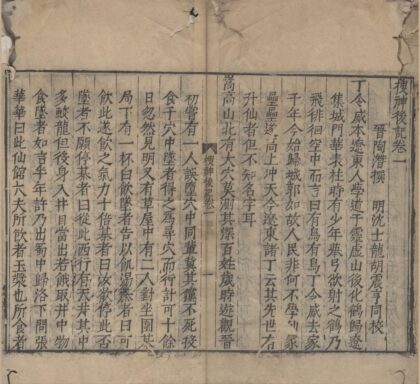 搜神後記卷一
晉陶潛撰　明沈士龍胡震亨同校
丁令威本遼東人學道于靈虛山後化鶴歸遼
集城門華表柱時有少年舉弓欲射之鶴乃
飛徘徊空中而言曰有鳥有鳥丁令威去家
千年今始歸城郭如故人民非何不學仙冢
壘壘遂高上冲天今遼東諸丁云其先世有
升仙者但不知名字耳
嵩高山北有大穴莫測其深百姓歲時遊觀晉
搜神後記卷一
一
初嘗有一人誤墮穴中同輩冀其儻不死投
食于穴中墜者得之為尋穴而行計可十餘
日忽然見明又有草屋中有二人對坐圍棊
局下有一杯白飲墜者告以飢渴棊者曰可
飲此遂飲之氣力十倍棊者曰汝欲停此否
墜者不願停棊者曰從此西行有天井其中
多蛟龍但投身入井自當出若餓取井中物
食墜者如言半年許乃出蜀中歸洛下問張
華華曰此仙館大夫所飲者玉漿也所食者